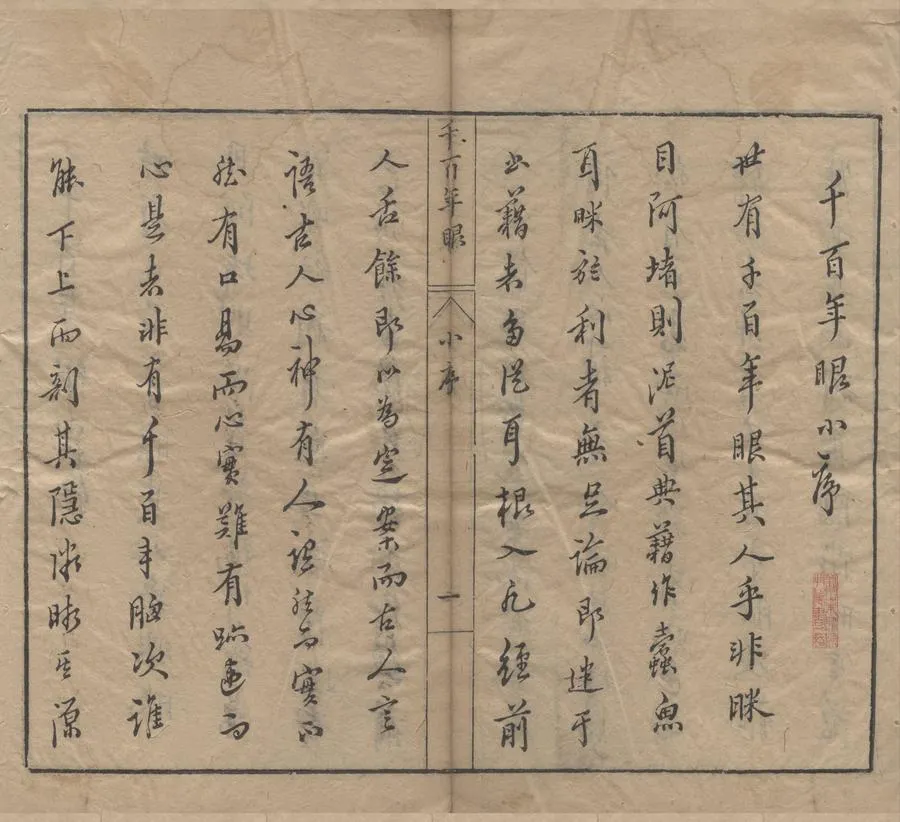 千百年眼小序
世有千百年眼其人乎非眯
目阿堵則泥首典籍作蠹魚
耳眯於利者無足論即迷于
書藉者多從耳根入凡經前
千百年眼
小序
一
人舌餘即以為定案而古人言
語古人心神有人語然而實不
然有口易而心實難有跡違而
心是者非有千百年胸次誰
能下上而剖其隱微晰其源